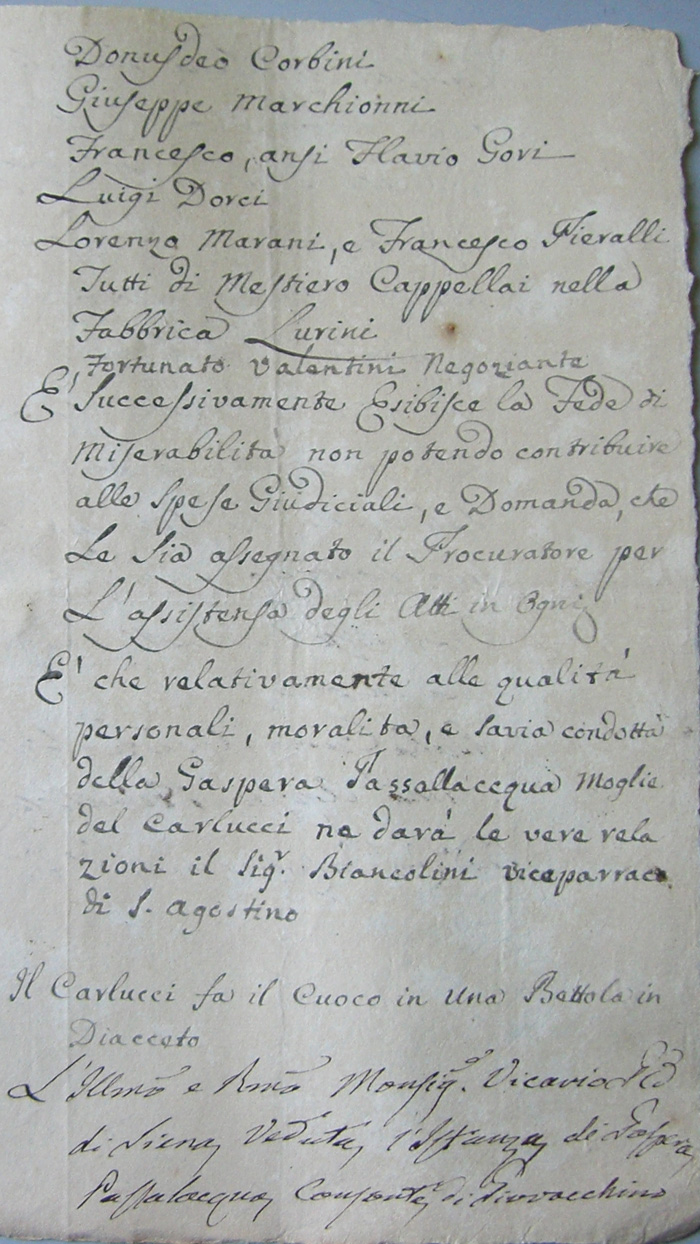 Donusdeo Corbini
Giuseppe Marchionni
Francesco, ansi Flavio Gori
Luigi Dorci
Lorenzo Marani, e Francesco Fieralli
Tutti di Mestiero Cappellai nella
Fabbrica Lurini
Fortunato Valentini Negoziante
E' Successivamente Esibisce la Fede di
Miserabilita non potendo contribuire
alle spese Giudiciali, e Domanda, che
Le Sia assegnato il Procuratore per
L'assistensa degli Atti in Ogni
E' che relativamente alle qualità
personali, moralita, e savia condotta
della Gaspera Passallacequa Moglie
del Carlucci ne darà le vere rela
zioni il Sigr. Biancolini viceparraco
di S. Agostino
Il Carlucci fa il Cuoco in Una Bettola in
Diacceto
L'Illmo e Rmo Monsig. Vicario
di Siena Veduta l'Istanza di Gaspera
Passalacqua Consorte di Giovacchino